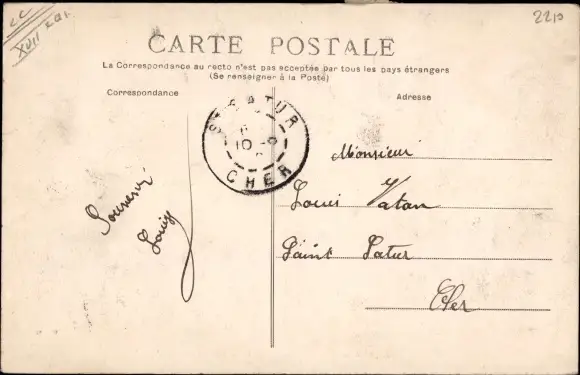 XVII
2210
CARTE POSTALE
La Correspondance au recto n'est pas acceptée par tous les pays étrangers
(Se renseigner à la Poste)
Correspondance
Adresse
ST SATUR
CHER
Souvenir
Louis
Monsieur
Louis Vatan
Saint Satur
Cher